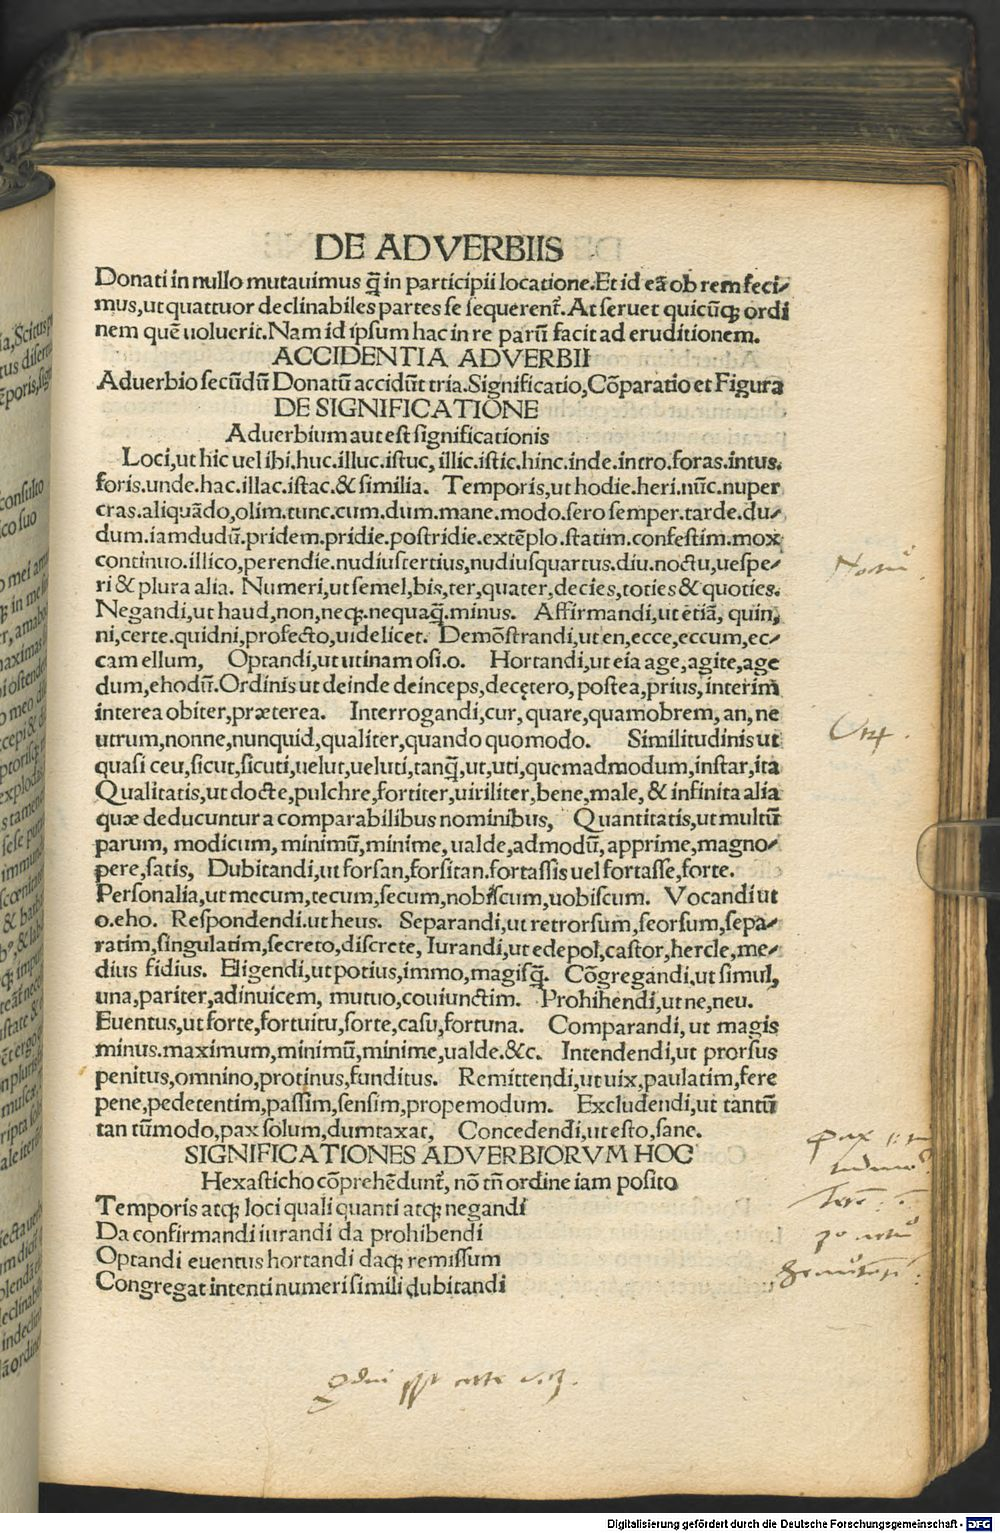 DE ADVERBIIS
Donati in nullo mutauimus q̄ in participii locatione.Et id eā ob rem feci/
mus,ut quattuor declinabiles partes se sequerent̃. At seruet quicūq; ordi
nem quē uoluerit.Nam id ipsum hac in re parū facit ad eruditionem.
ACCIDENTIA ADVERBII
Aduerbio secūdū Donatū accidūt tria.Significatio,Cōparatio et Figura
DE SIGNIFICATIONE
Aduerbium aut est significationis
Loci,ut hic uel ibi.huc.illuc.istuc, illic.istic.hinc.inde.intro.foras.intus.
foris.unde.hac.illac.istac.& similia. Temporis,ut hodie.heri.nūc.nuper
cras.aliquādo,olim.tunc.cum.dum.mane.modo.sero semper.tarde.du/
dum.iamdudū.pridem.pridie.postridie.extēplo.statim.confestim.mox
continuo.illico,perendie.nudiustertius,nudiusquartus.diu.noctu,uespe/
ri & plura alia. Numeri,ut semel,bis,ter,quater,decies,toties & quoties.
Negandi,ut haud,non,neq;.nequaq̄.minus. Affirmandi,ut etiā, quin,
ni,certe.quidni,profecto,uidelicet. Demōstrandi,ut en,ecce,eccum,ec/
cam ellum, Optandi,ut utinam osi.o. Hortandi,ut eia age,agite,age
dum,ehodū.Ordinis ut deinde deinceps,decętero,postea,prius,interim
interea obiter,præterea. Interrogandi,cur,quare,quamobrem,an,ne
utrum,nonne,nunquid,qualiter,quando quomodo. Similitudinis ut
quasi ceu,sicut,sicuti,uelut,ueluti,tanq̄,ut,uti,quemadmodum,instar,ita
Qualitatis,ut docte,pulchre,fortiter,uiriliter,bene,male, & infinita alia
quæ deducuntur a comparabilibus nominibus, Quantitatis,ut multū
parum, modicum, minimū,minime, ualde,admodū,apprime,magno/
pere,satis, Dubitandi,ut forsan,forsitan.fortassis uel fortasse,forte.
Personalia,ut mecum,tecum,secum,nobiscum,uobiscum. Vocandi ut
o.eho. Respondendi.ut heus. Separandi,ut retrorsum,seorsum,sepa/
ratim,singulatim,secreto,discrete, Iurandi,ut edepol,castor,hercle,me/
dius fidius. Eligendi,ut potius,immo,magisq̄. Cōgregandi,ut simul,
una,pariter,adinuicem, mutuo,couiunctim. Prohibendi,ut ne,neu.
Euentus,ut forte,fortuitu,sorte,casu,fortuna. Comparandi, ut magis
minus.maximum,minimū,minime,ualde.&c. Intendendi,ut prorsus
penitus,omnino,protinus,funditus. Remittendi,ut uix,paulatim,fere
pene,pedetentim,passim,sensim,propemodum. Excludendi,ut tantū
tan tūmodo,pax solum,dumtaxat, Concedendi,ut esto,sane.
SIGNIFICATIONES ADVERBIORVM HOC
Hexasticho cōprehēdunt̃, nō tñ ordine iam posito
Temporis atq; loci quali quanti atq; negandi
Da confirmandi iurandi da prohibendi
Optandi euentus hortandi daq; remissum
Congregat intenti numeri simili dubitandi
Digitalisierung gefördert durch die Deutsche Forschungsgemeinschaft - DFG